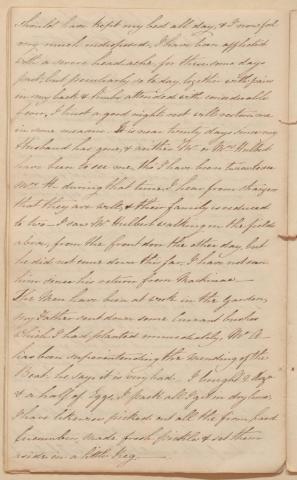 should have kept my bed all day, & I now feel
very much indisposed, I have been afflicted
with a severe head ache for these some days
past, but peculiarly so today, together with pain
in my back & limbs, attended with considerable
fever, I trust a good nights rest will restore me
in some measure. It is near twenty days since my
Husband has gone, & neither Mr or Mrs Hulbert
have been to see me, tho I have been twice to see
Mrs H. during that time. I hear from
that they are well, & their family is reduced
to two — I saw Mr Hulbert walking in the fields
above, from the front door the other day, but
he did not come down thus far, I have not seen
him since his return from Mackinac —
The Men have been at work in the Garden,
my Father sent down some Currant bushes
which I had planted immediately, Mr A—
has been superintending the mending of the
Boat, he says it is very bad. I bought 2
& a half of Eggs. I pack all I get in dry
I have likewise picked out all the from
Cucumbers, made fresh pickle & set them
aside in a little Keg —